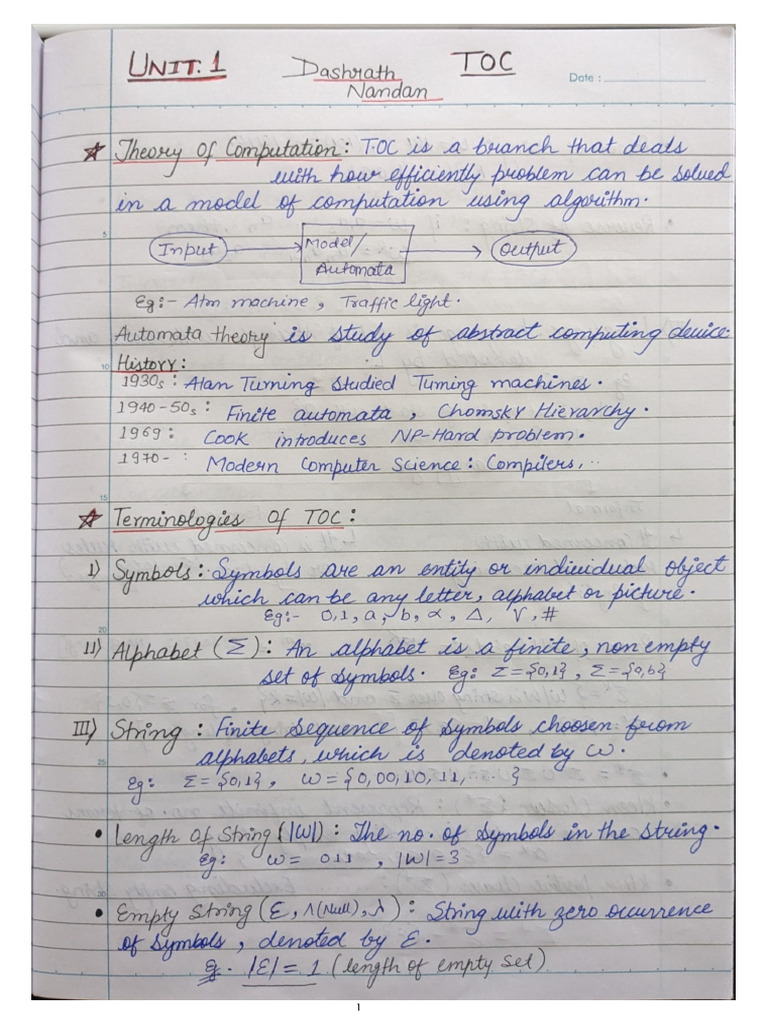 UNIT. 1 Dashrath Nandan TOC Date :
☆ Theory of Computation : T.O.C is a branch that deals
with how efficiently problem can be solved
in a model of computation using algorithm.
5
Input → Model/Automata → Output
Eg:- Atm machine, Traffic light.
Automata theory is study of abstract computing device.
10 History:
1930s : Alan Turning studied Turning machines.
1940-50s : Finite automata, Chomsky Hierarchy.
1969 : Cook introduces NP-Hard problem.
1970- : Modern Computer Science: Compilers, ..
15
☆ Terminologies of TOC :
I) Symbols : Symbols are an entity or individual object
which can be any letter, alphabet or picture.
Eg:- 0,1, a, b, α, Δ, √, #
20
II) Alphabet (Σ) : An alphabet is a finite, non empty
set of symbols. Eg: Σ = {0,1} , Σ = {a,b}
III) String : Finite Sequence of symbols choosen from
25 alphabets, which is denoted by ω.
Eg: Σ = {0,1}, ω = {0,00,10,11,...}
• Length of String (|W|) : The no. of symbols in the string.
Eg: ω = 011 , |W| = 3
30
• Empty String (Ɛ, Λ(Null), λ) : String with zero occurrence
of symbols, denoted by Ɛ.
eg. |Ɛ| = 1 (length of empty set)
1